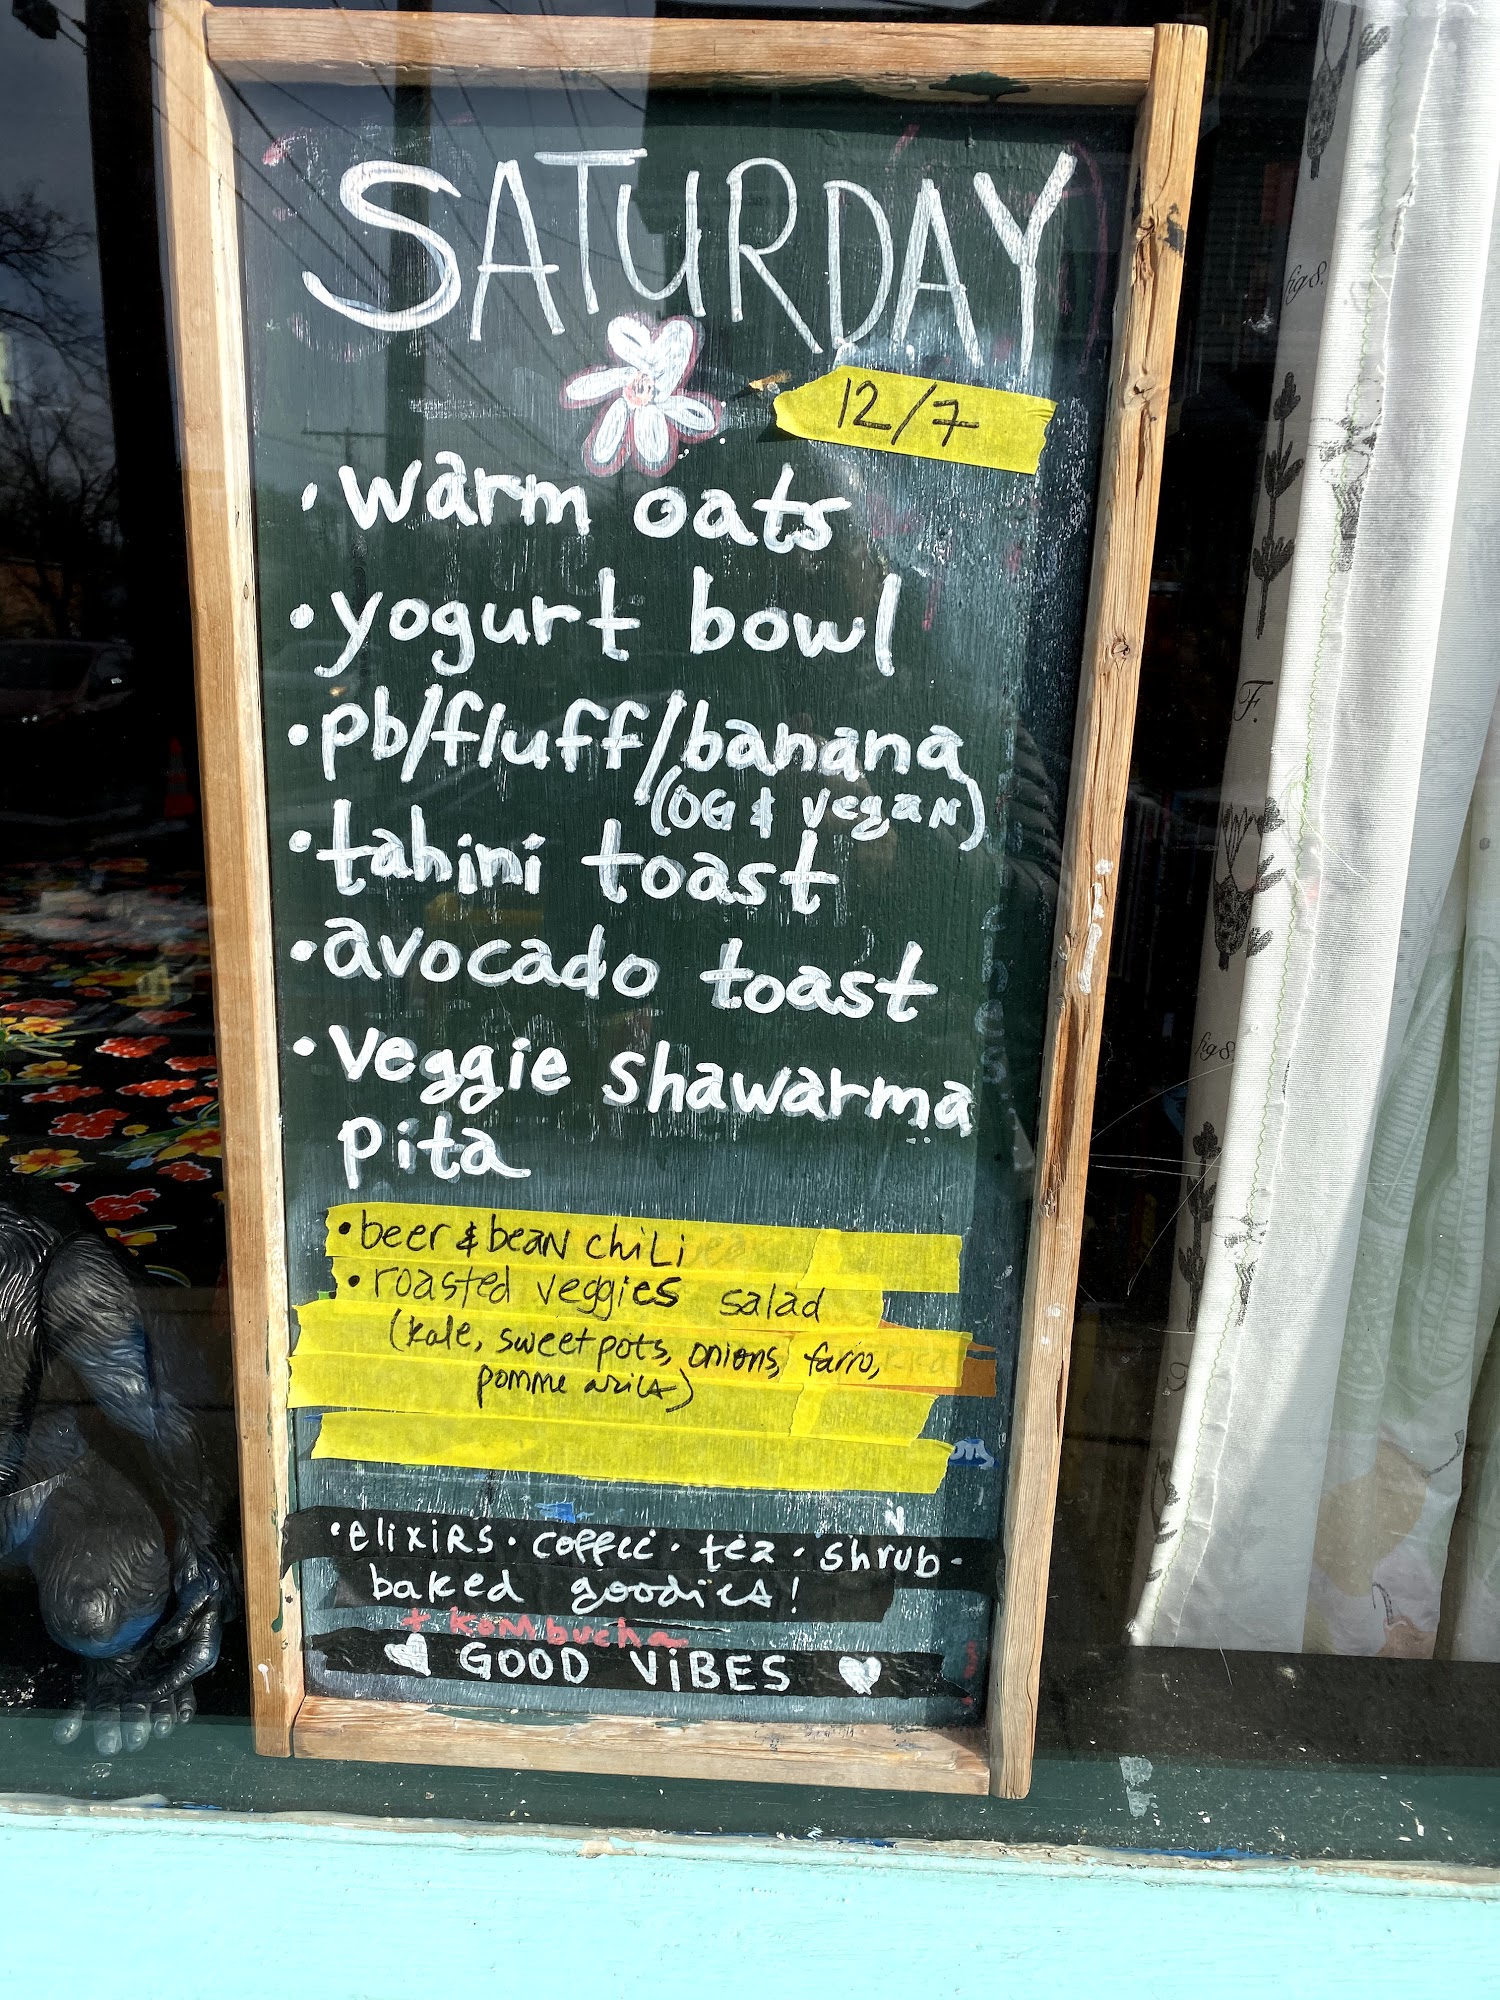 SATURDAY
12/7
• warm oats
• yogurt bowl
• pb/fluff/banana
(OG & vegan)
• tahini toast
• avocado toast
• veggie shawarma
pita
• beer & bean chili
• roasted veggies salad
(kale, sweet pots, onions, farro,
pomme arils)
• elixirs • coffee • tea • shrub •
baked goodies!
+ kombucha
GOOD ViBES
fig 8.
F.
fig 8.